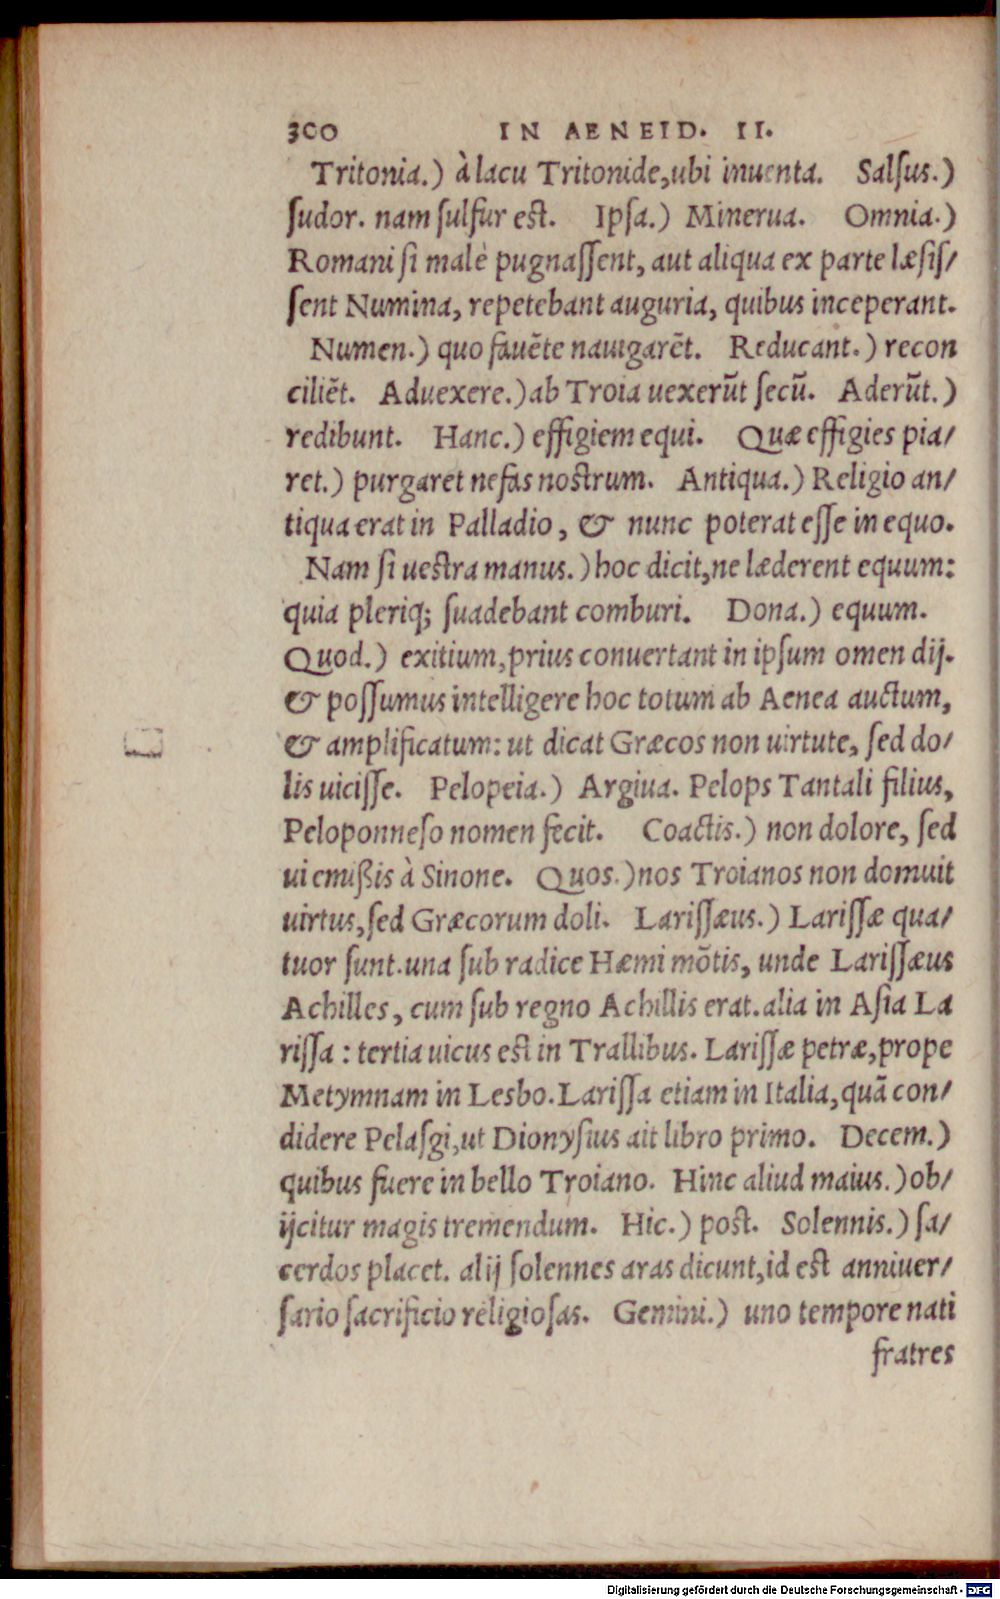 300 IN AENEID. II.
Tritonia.) à lacu Tritonide, ubi inuenta. Salſus.)
ſudor. nam ſulfur eſt. Ipſa.) Minerua. Omnia.)
Romani ſi malè pugnaſſent, aut aliqua ex parte læſiſ/
ſent Numina, repetebant auguria, quibus inceperant.
Numen.) quo fauẽte nauigarẽt. Reducant.) recon
ciliẽt. Aduexere.) ab Troia uexerũt ſecũ. Aderũt.)
redibunt. Hanc.) effigiem equi. Quæ effigies pia/
ret.) purgaret nefas noſtrum. Antiqua.) Religio an/
tiqua erat in Palladio, & nunc poterat eſſe in equo.
Nam ſi ueſtra manus.) hoc dicit, ne læderent equum:
quia pleriq; ſuadebant comburi. Dona.) equum.
Quod.) exitium, prius conuertant in ipſum omen dij.
& poſſumus intelligere hoc totum ab Aenea auctum,
& amplificatum: ut dicat Græcos non uirtute, ſed do/
lis uiciſſe. Pelopeia.) Argiua. Pelops Tantali filius,
Peloponneſo nomen fecit. Coactis.) non dolore, ſed
ui emißis à Sinone. Quos.) nos Troianos non domuit
uirtus, ſed Græcorum doli. Lariſſæus.) Lariſſæ qua/
tuor ſunt. una ſub radice Hæmi mõtis, unde Lariſſæus
Achilles, cum ſub regno Achillis erat. alia in Aſia La
riſſa : tertia uicus eſt in Trallibus. Lariſſæ petræ, prope
Metymnam in Lesbo. Lariſſa etiam in Italia, quã con/
didere Pelaſgi, ut Dionyſius ait libro primo. Decem.)
quibus fuere in bello Troiano. Hinc aliud maius.) ob/
ijcitur magis tremendum. Hic.) poſt. Solennis.) ſa/
cerdos placet. alij ſolennes aras dicunt, id eſt anniuer/
ſario ſacrificio religioſas. Gemini.) uno tempore nati
fratres
Digitalisierung gefördert durch die Deutsche Forschungsgemeinschaft - DFG